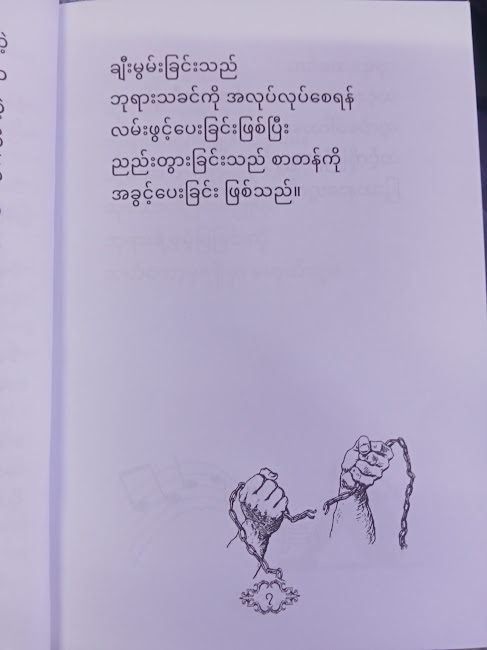 ချီးမွမ်းခြင်းသည်
ဘုရားသခင်ကို အလုပ်လုပ်စေရန်
လမ်းဖွင့်ပေးခြင်းဖြစ်ပြီး
ညည်းတွားခြင်းသည် စာတန်ကို
အခွင့်ပေးခြင်း ဖြစ်သည်။
၇